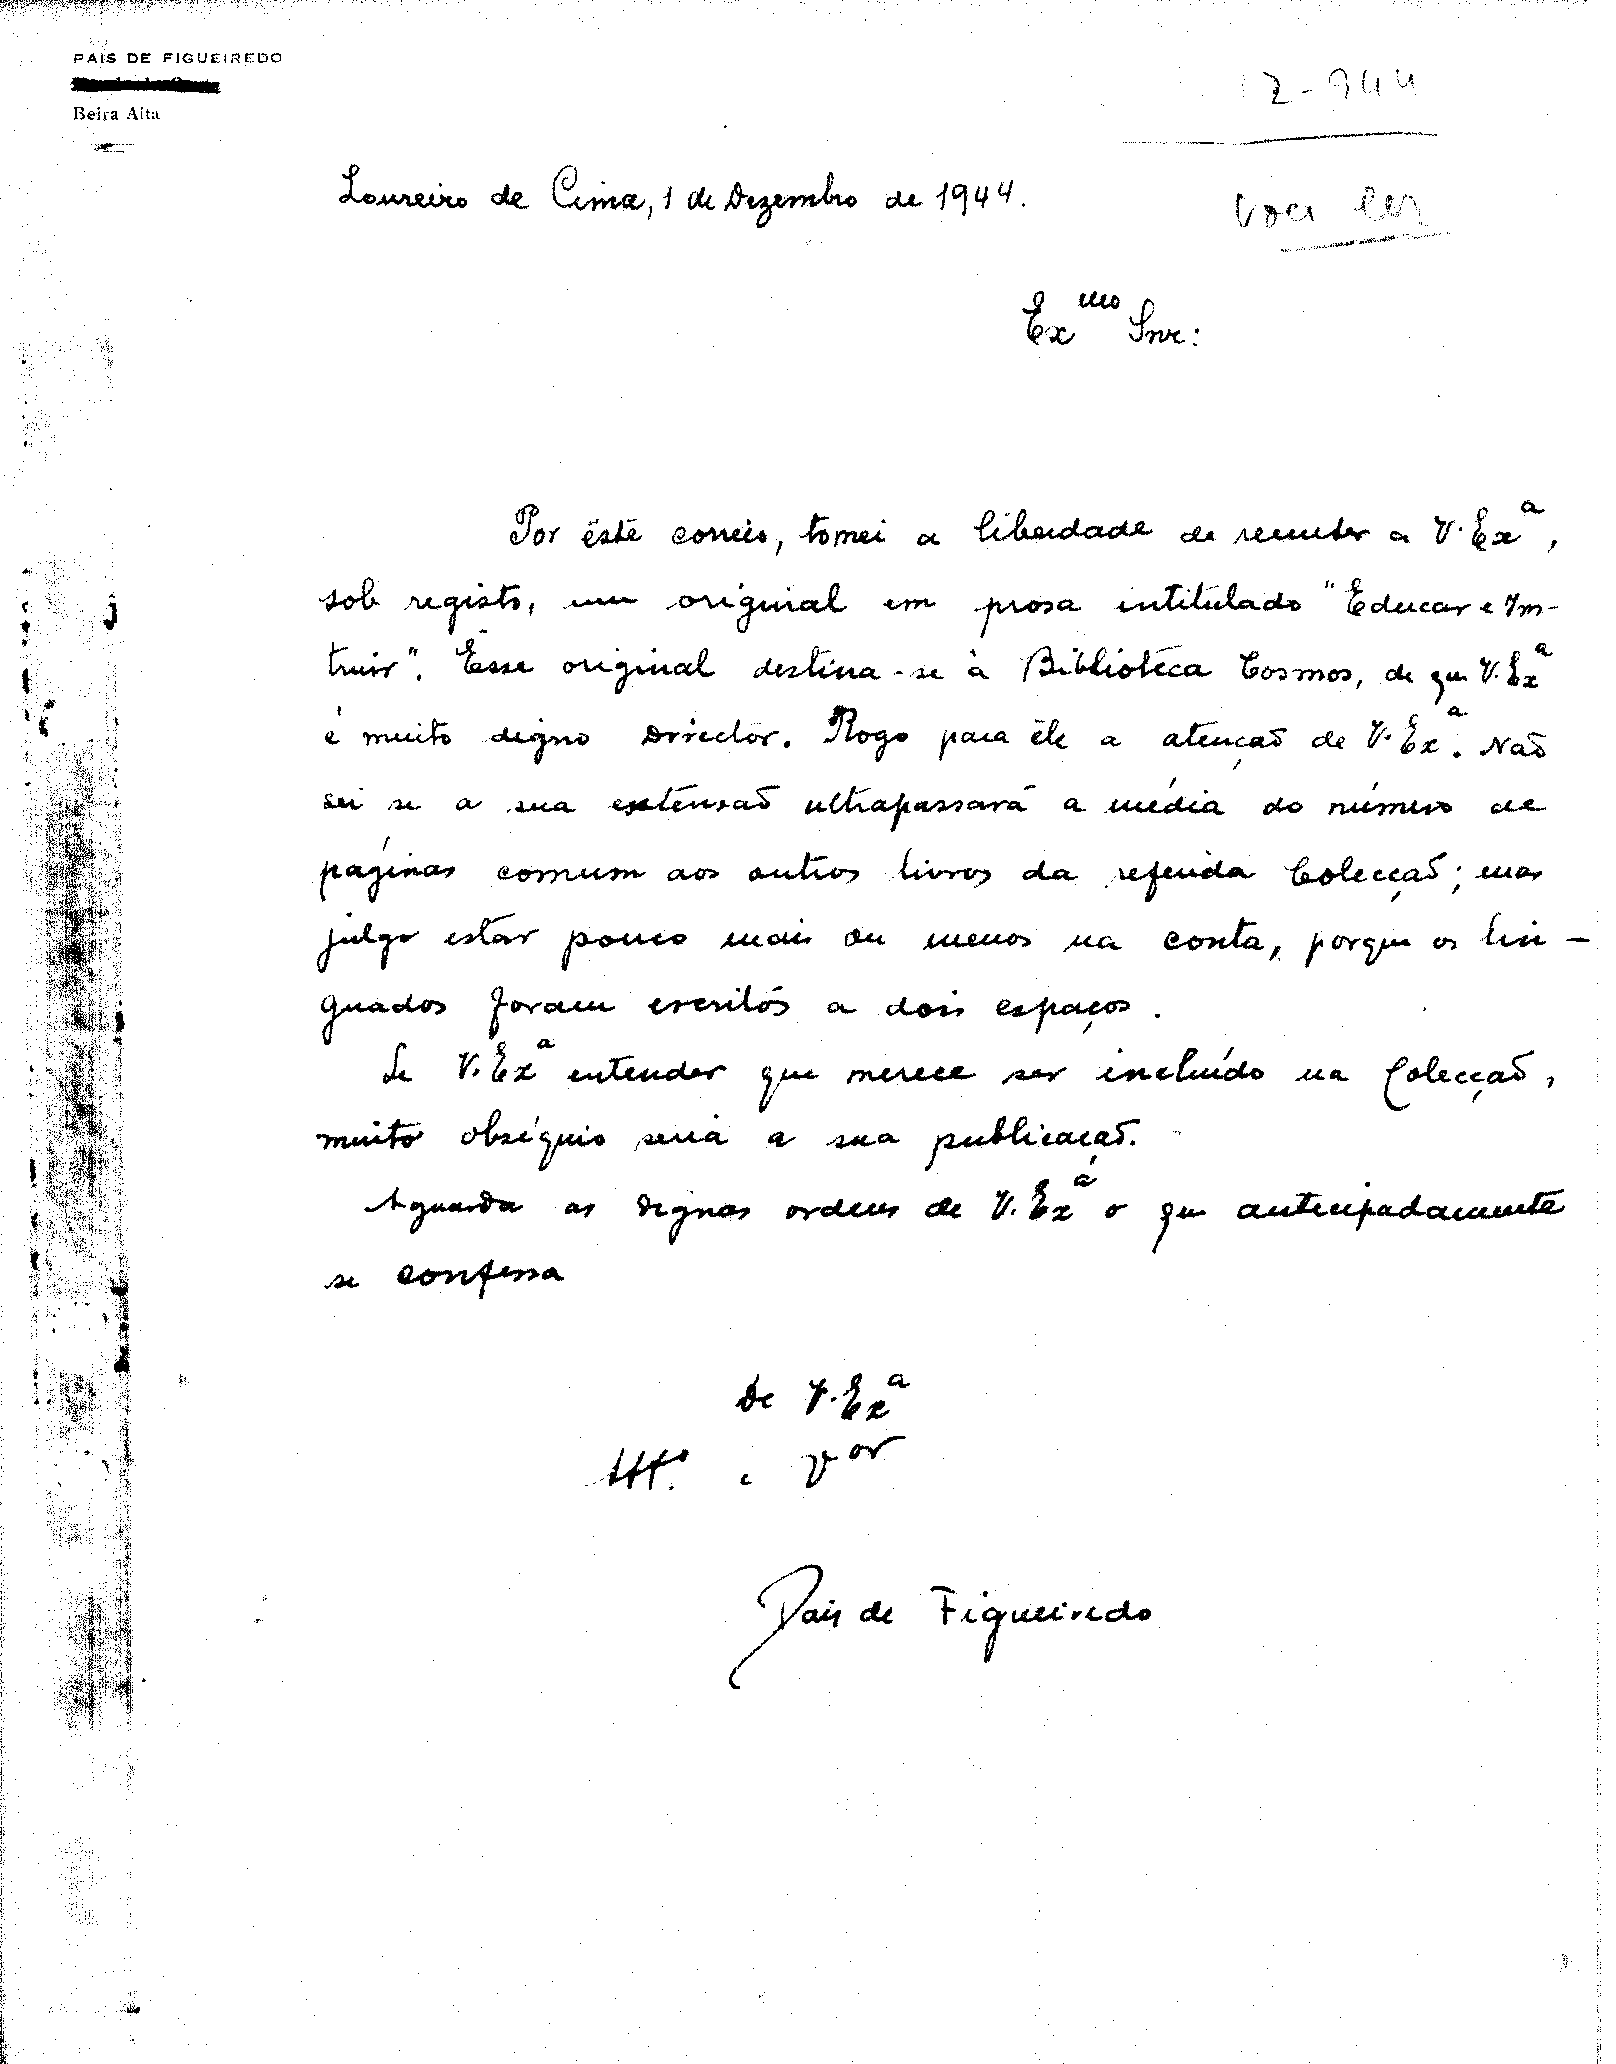 PAIS DE FIGUEIREDO
Beira Alta
12-944
Loureiro de Cima, 1 de Dezembro de 1944.
Vou ler
Exmo Snr:
Por êste correio, tomei a liberdade de remeter a V. Exª,
sob registo, um original em prosa intitulado "Educar e Ins-
truir". Êsse original destina-se à Biblioteca Cosmos, de que V. Exª
é muito digno Director. Rogo para êle a atenção de V. Exª. Não
sei se a sua extensão ultrapassará a média do número de
páginas comum aos outros livros da referida Colecção; mas
julgo estar pouco mais ou menos na conta, porque os lin-
guados foram escritos a dois espaços.
Se V. Exª entender que merece ser incluído na Colecção,
muito obséquio seria a sua publicação.
Aguarda as dignas ordens de V. Exª o que antecipadamente
se confessa
De V. Exª
Attº. e Vor
Pais de Figueiredo